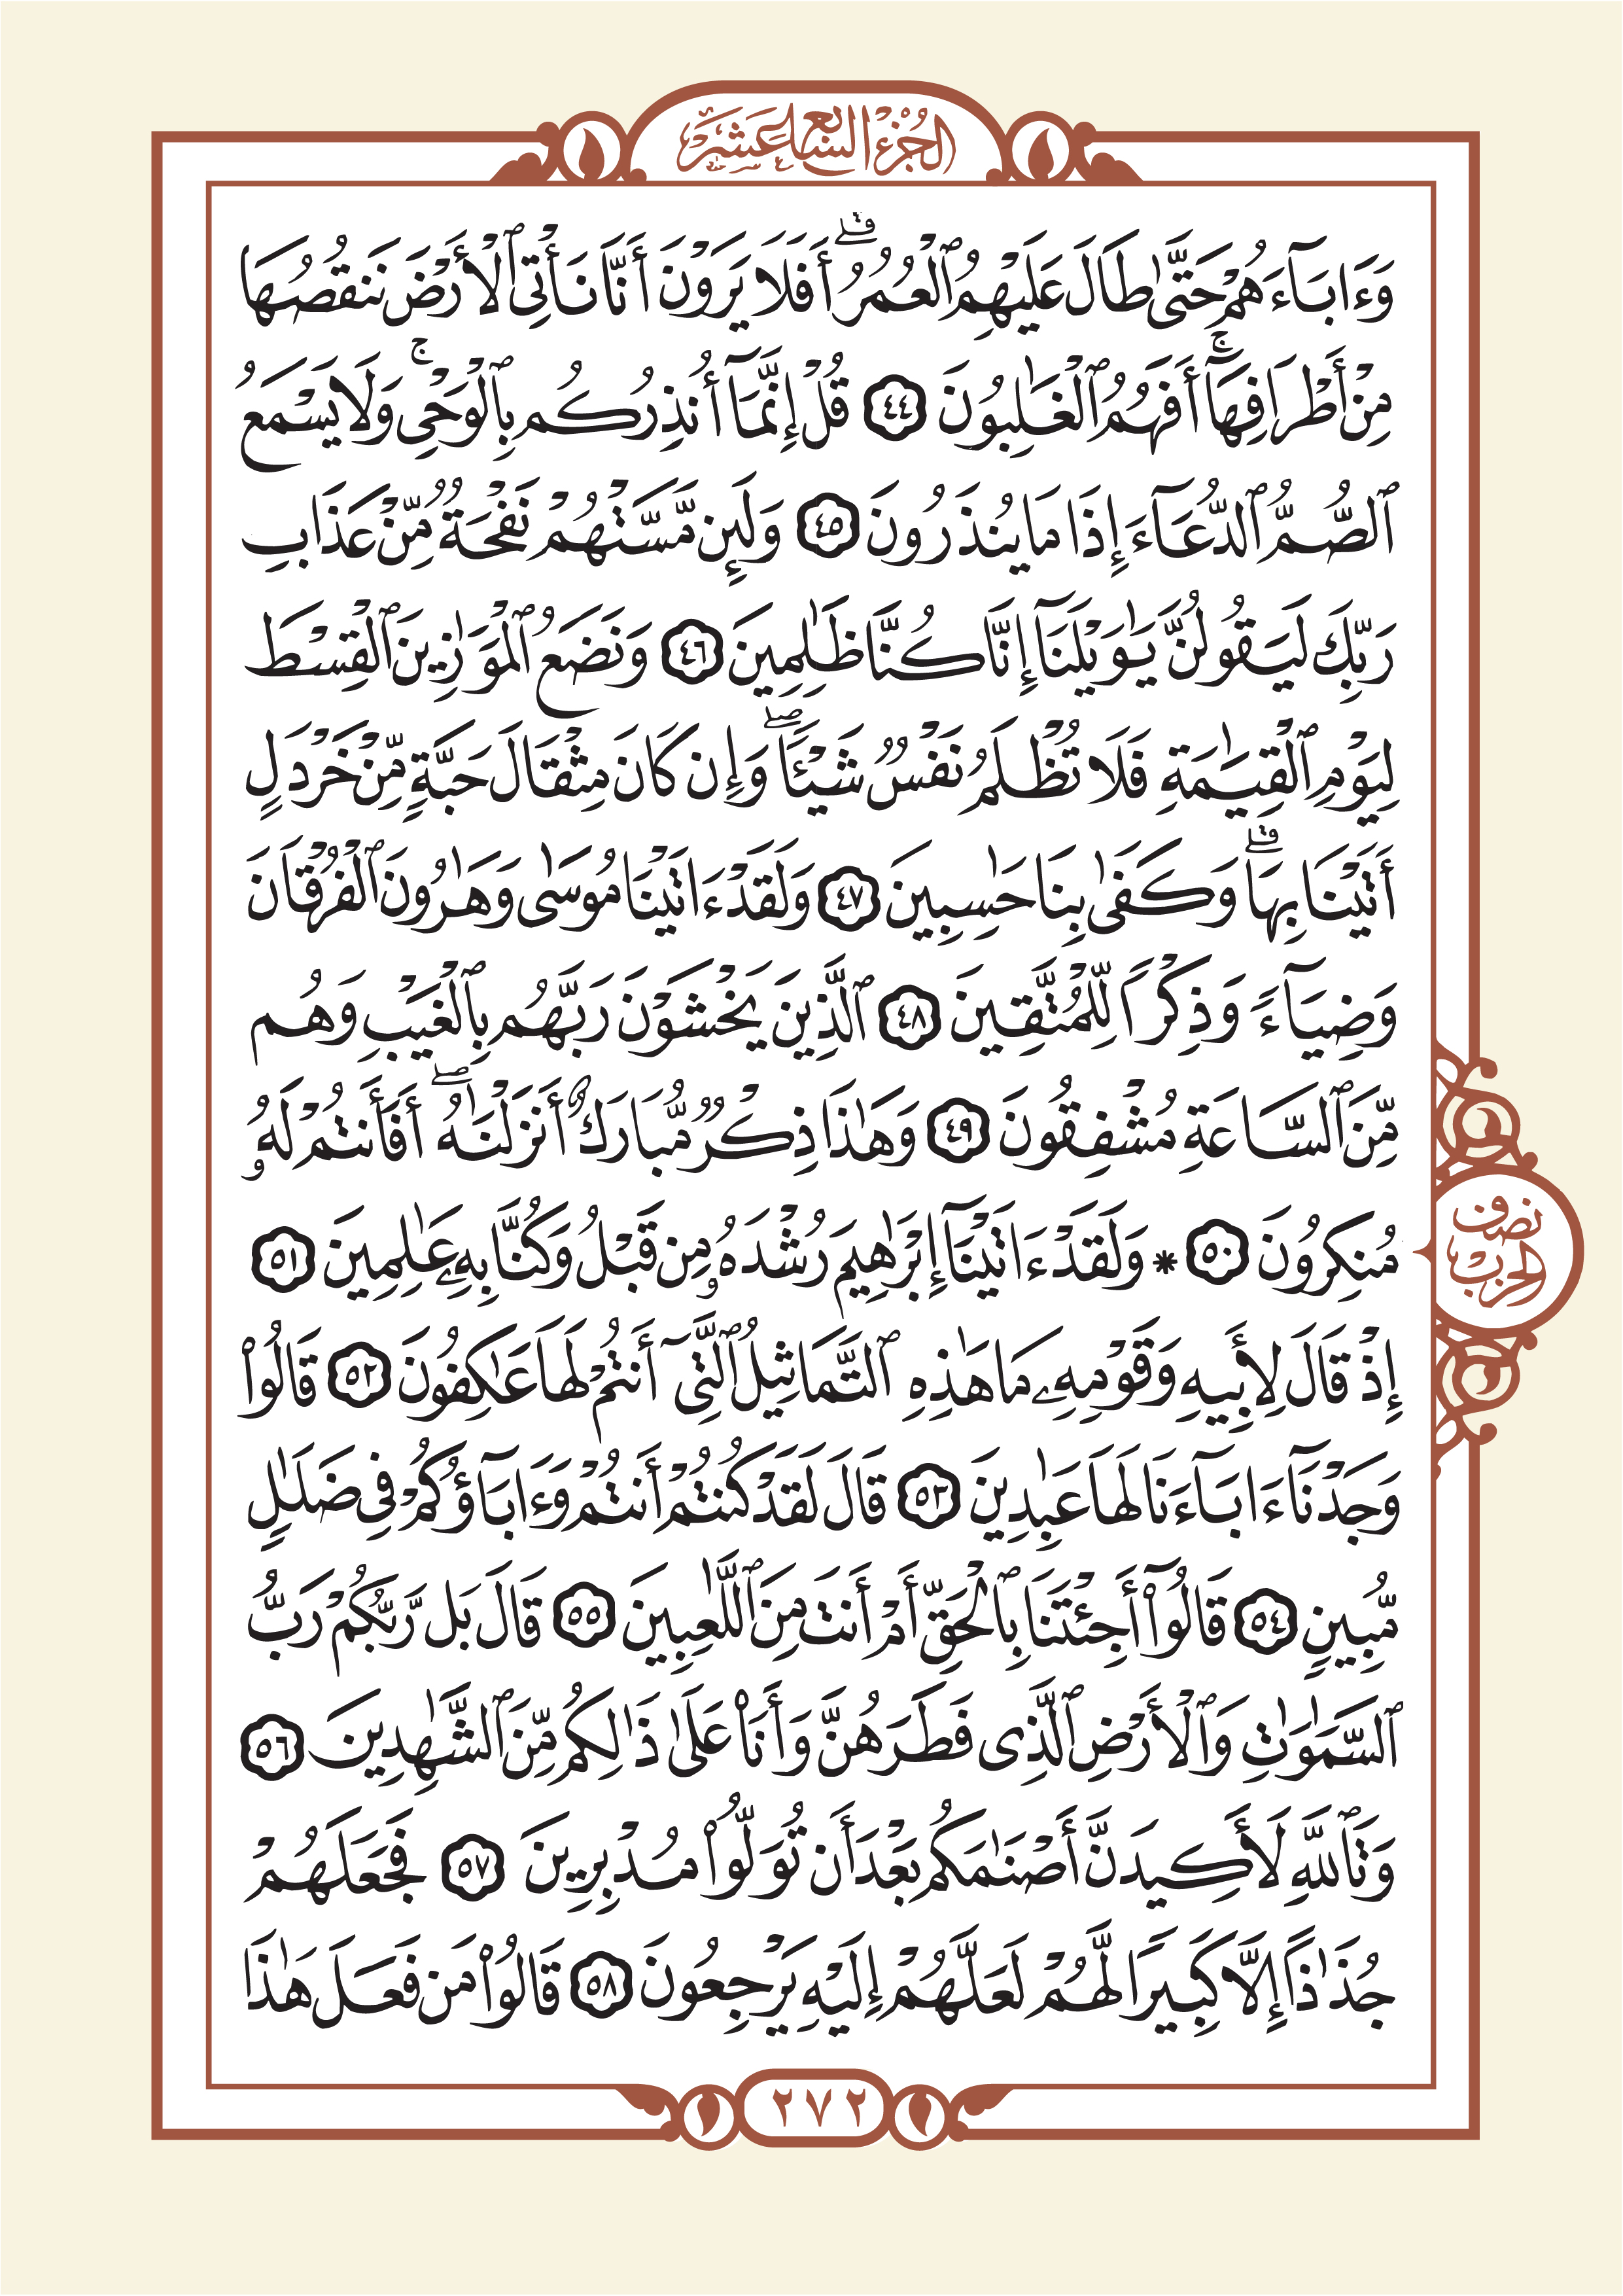 الجزء السابع عشر
وَءَابَآءَهُمْ حَتَّىٰ طَالَ عَلَيْهِمُ ٱلْعُمُرُ ۗ أَفَلَا يَرَوْنَ أَنَّا نَأْتِى ٱلْأَرْضَ نَنقُصُهَا
مِنْ أَطْرَافِهَآ ۚ أَفَهُمُ ٱلْغَـٰلِبُونَ ٤٤ قُلْ إِنَّمَآ أُنذِرُكُم بِٱلْوَحْىِ ۚ وَلَا يَسْمَعُ
ٱلصُّمُّ ٱلدُّعَآءَ إِذَا مَا يُنذَرُونَ ٤٥ وَلَئِن مَّسَّتْهُمْ نَفْحَةٌ مِّنْ عَذَابِ
رَبِّكَ لَيَقُولُنَّ يَـٰوَيْلَنَآ إِنَّا كُنَّا ظَـٰلِمِينَ ٤٦ وَنَضَعُ ٱلْمَوَٰزِينَ ٱلْقِسْطَ
لِيَوْمِ ٱلْقِيَـٰمَةِ فَلَا تُظْلَمُ نَفْسٌ شَيْـًٔا ۖ وَإِن كَانَ مِثْقَالَ حَبَّةٍ مِّنْ خَرْدَلٍ
أَتَيْنَا بِهَا ۗ وَكَفَىٰ بِنَا حَـٰسِبِينَ ٤٧ وَلَقَدْ ءَاتَيْنَا مُوسَىٰ وَهَـٰرُونَ ٱلْفُرْقَانَ
وَضِيَآءً وَذِكْرًا لِّلْمُتَّقِينَ ٤٨ ٱلَّذِينَ يَخْشَوْنَ رَبَّهُم بِٱلْغَيْبِ وَهُم
مِّنَ ٱلسَّاعَةِ مُشْفِقُونَ ٤٩ وَهَـٰذَا ذِكْرٌ مُّبَارَكٌ أَنزَلْنَـٰهُ ۖ أَفَأَنتُمْ لَهُۥ
مُنكِرُونَ ٥٠ * وَلَقَدْ ءَاتَيْنَآ إِبْرَٰهِيمَ رُشْدَهُۥ مِن قَبْلُ وَكُنَّا بِهِۦ عَـٰلِمِينَ ٥١
نصف
الحزب
إِذْ قَالَ لِأَبِيهِ وَقَوْمِهِۦ مَا هَـٰذِهِ ٱلتَّمَاثِيلُ ٱلَّتِىٓ أَنتُمْ لَهَا عَـٰكِفُونَ ٥٢ قَالُوا۟
وَجَدْنَآ ءَابَآءَنَا لَهَا عَـٰبِدِينَ ٥٣ قَالَ لَقَدْ كُنتُمْ أَنتُمْ وَءَابَآؤُكُمْ فِى ضَلَـٰلٍ
مُّبِينٍ ٥٤ قَالُوٓا۟ أَجِئْتَنَا بِٱلْحَقِّ أَمْ أَنتَ مِنَ ٱللَّـٰعِبِينَ ٥٥ قَالَ بَل رَّبُّكُمْ رَبُّ
ٱلسَّمَـٰوَٰتِ وَٱلْأَرْضِ ٱلَّذِى فَطَرَهُنَّ وَأَنَا۠ عَلَىٰ ذَٰلِكُم مِّنَ ٱلشَّـٰهِدِينَ ٥٦
وَتَٱللَّهِ لَأَكِيدَنَّ أَصْنَـٰمَكُم بَعْدَ أَن تُوَلُّوا۟ مُدْبِرِينَ ٥٧ فَجَعَلَهُمْ
جُذَٰذًا إِلَّا كَبِيرًا لَّهُمْ لَعَلَّهُمْ إِلَيْهِ يَرْجِعُونَ ٥٨ قَالُوا۟ مَن فَعَلَ هَـٰذَا
٢٧٢